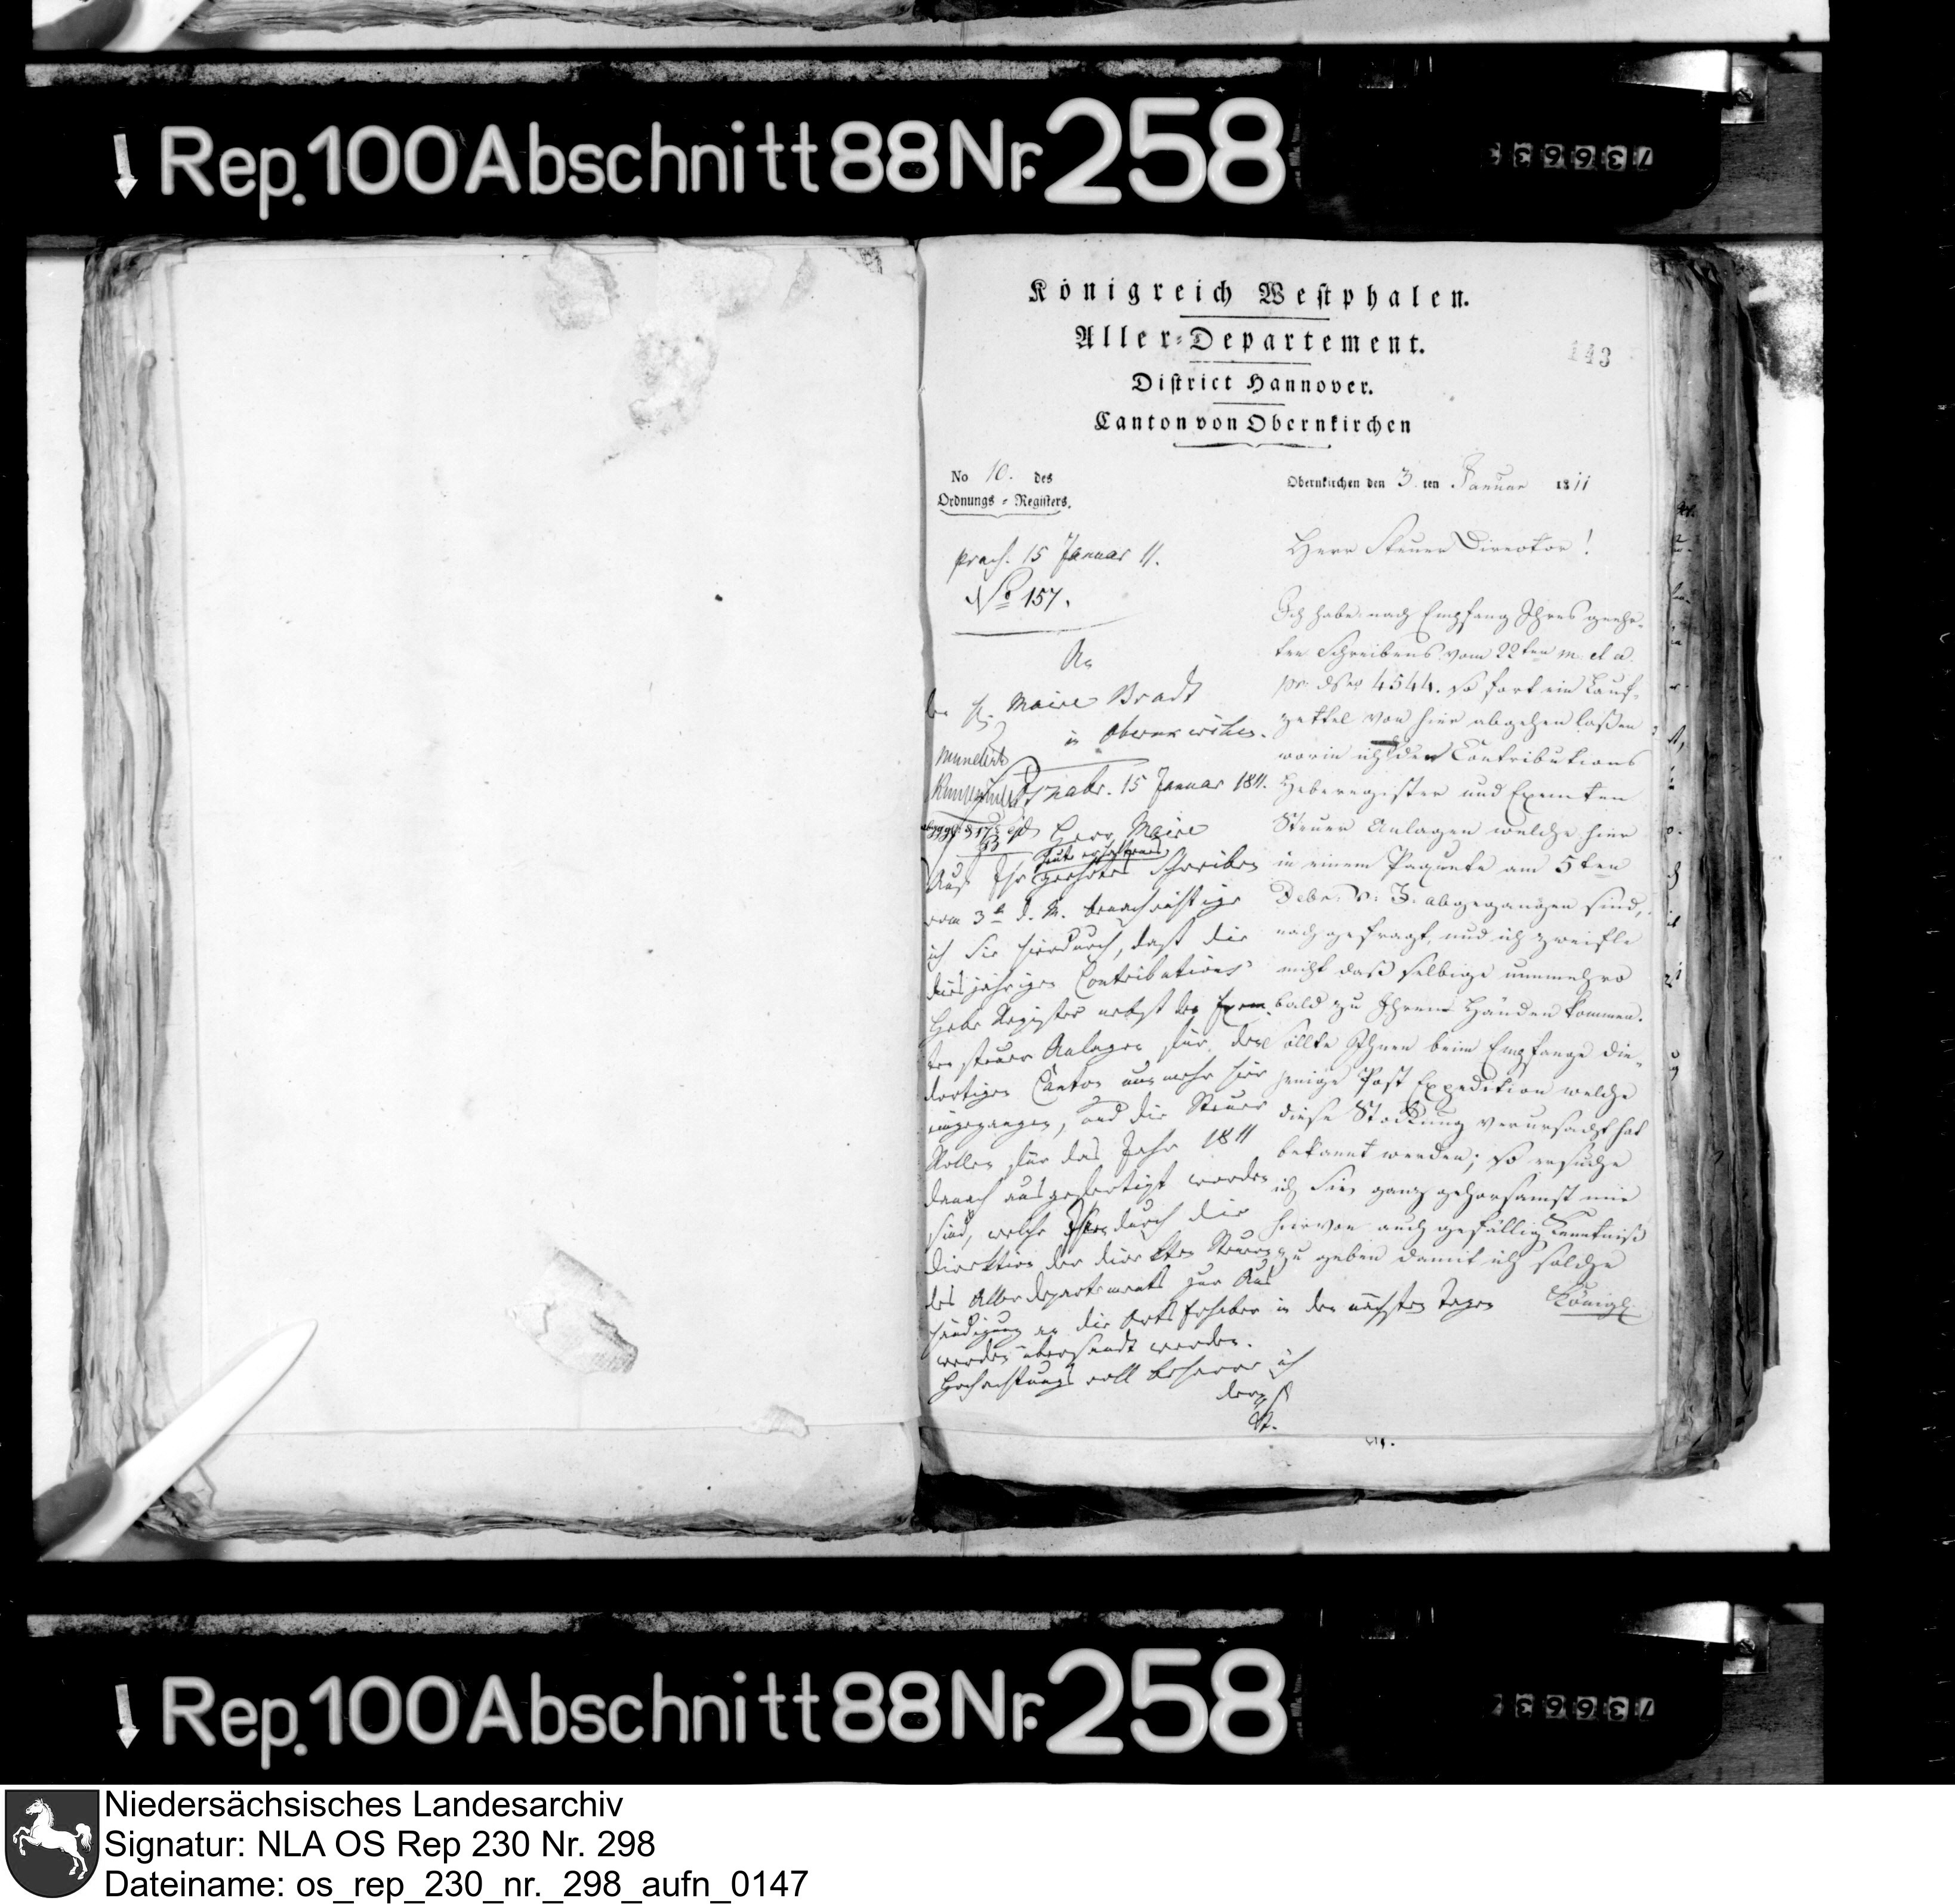 Rep. 100 Abschnitt 88 Nr. 258
Königreich Westphalen.
Aller-Departement.
143
District Hannover.
Canton von Obernkirchen
No 10. des
Ordnungs-Registers.
Obernkirchen den 3. ten Januar 1811
praes. 15 Januar 11.
No 157.
An
den H. Maire Bradt
in Obernkirchen.
Osnabr. 15 Januar 1811.
Herr Maire
heute erhaltenes
Auf Ihr geehrtes Schreiben
vom 3t d. M. benachrichtige
ich Sie hierdurch, daß die
diesjährigen Contributions
Hebe Register nebst den Exem-
ten steuer Anlagen für den
dortigen Canton nunmehr hier
eingegangen, und die Steuer
Rollen für das Jahr 1811
danach ausgefertigt worden
sind, welche Ihnen durch die
Direktion der direkten Steuern
des Allerdepartements zur Aus
händigung an die Ortserheber in den nächsten Tagen
werden übersandt werden.
Hochachtungsvoll beharre ich
der
Herr Steuer Director!
Ich habe nach Empfang Ihres geehr-
ten Schreibens vom 22ten m. et a.
pr. No 4544. so fort ein Lauf-
zettel von hier abgehen laßen
worin ich den Contributions
Heberegister und Exemten
Steuer Anlagen welche hier
in einem Paquete am 5ten
Debr. v: J. abgegangen sind,
nachgefragt, und ich zweifle
nicht daß selbige nunmehro
bald zu Ihren Händen kommen.
Sollte Ihnen beim Empfange die-
jenige Post Expedition welche
diese Stockung verursacht hat
bekannt werden; so ersuche
ich Sie, ganz gehorsamst mir
hiervon auch gefällig Kenntniß
zu geben damit ich solche
Königl.
Rep. 100 Abschnitt 88 Nr. 258
Niedersächsisches Landesarchiv
Signatur: NLA OS Rep 230 Nr. 298
Dateiname: os_rep_230_nr._298_aufn_0147